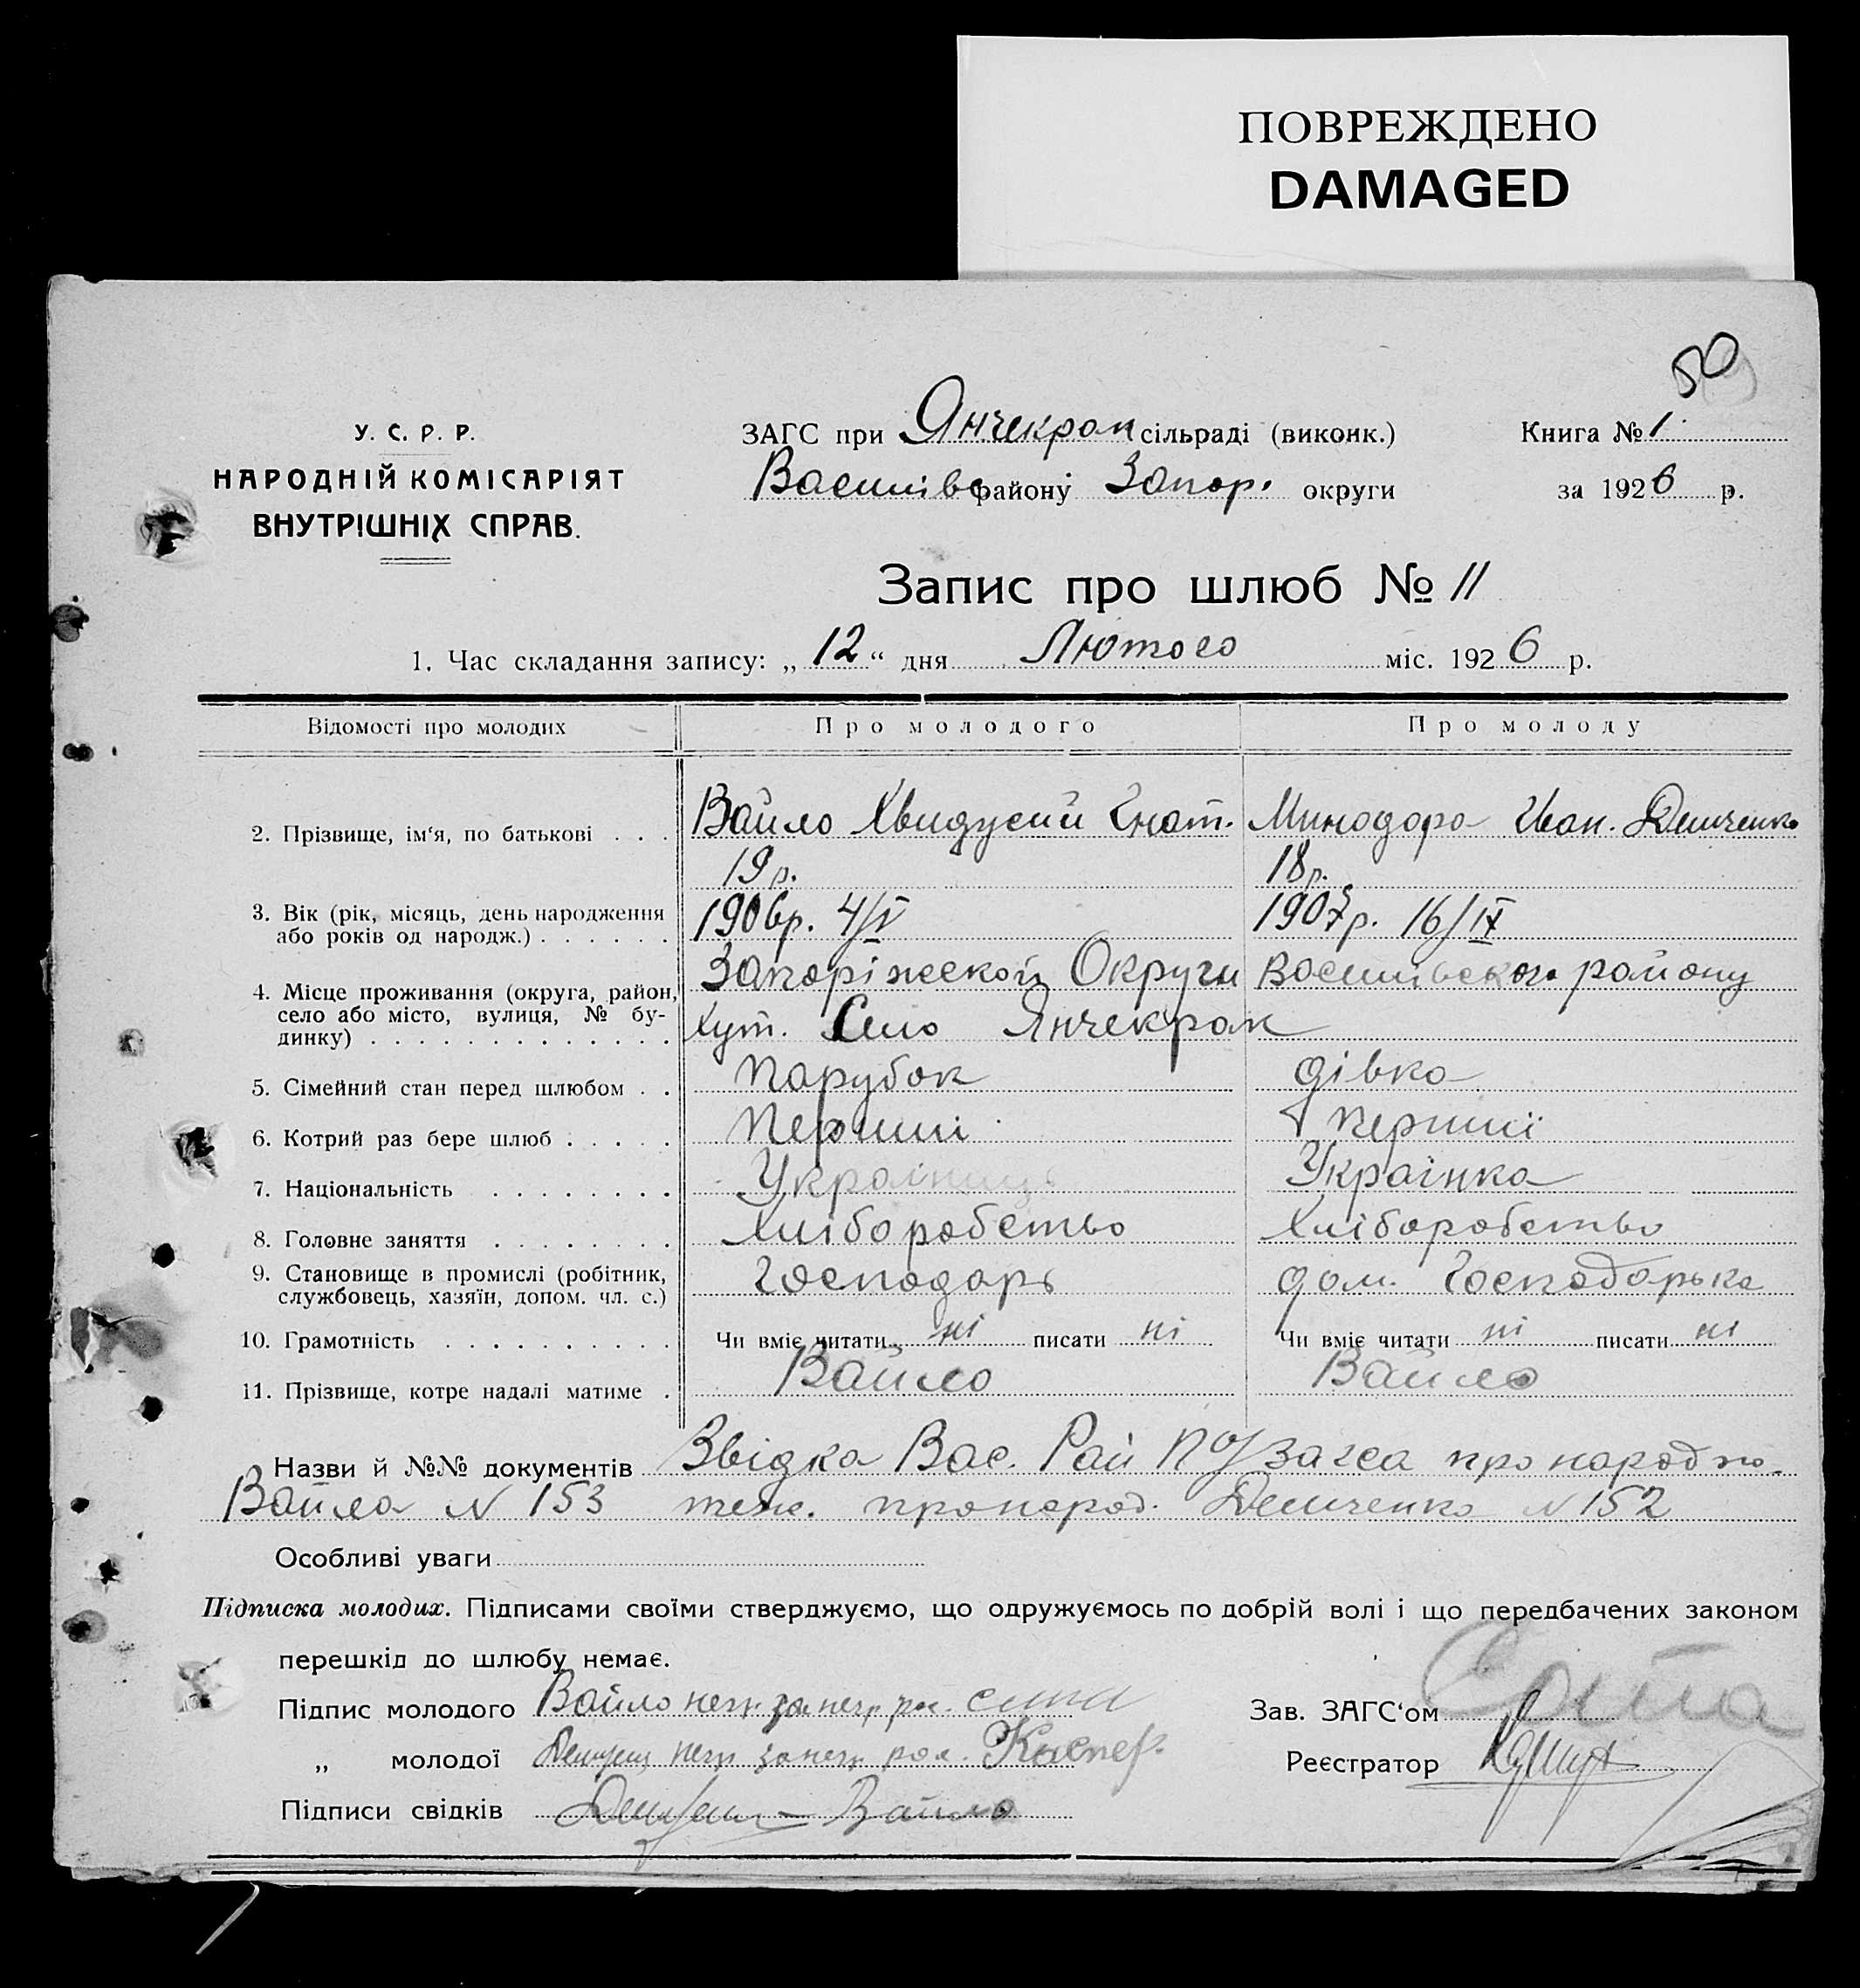 ПОВРЕЖДЕНО
DAMAGED
59
У. С. Р. Р.
НАРОДНІЙ КОМІСАРІЯТ
ВНУТРІШНІХ СПРАВ.
ЗАГС при Янчекрак сільраді (виконк.)
Василівс району Запор. округи
Книга № 1
за 1926 р.
Запис про шлюб № 11
1. Час складання запису: „ 12 “ дня Лютого міс. 1926 р.
Відомості про молодих Про молодого Про молоду
2. Прізвище, ім‘я, по батькові . . . Вайло Хвидусий Гнат. Минодора Иван. Демченко
19 р. 18 р.
3. Вік (рік, місяць, день народження 1906р. 4/V 1907р. 16/IX
або років од народж.) . . . . . .
4. Місце проживання (округа, район, Запоріжской Округи Василівского району
село або місто, вулиця, № бу- хут. Село Янчекрак
динку) . . . . . . . . . . . . .
5. Сімейний стан перед шлюбом . . Парубок дівка
6. Котрий раз бере шлюб . . . . . Перший перший
7. Національність . . . . . . . . Українець Українка
8. Головне заняття . . . . . . . . Хліборобство Хліборобство
9. Становище в промислі (робітник, Господарь дом. Господарька
службовець, хазяїн, допом. чл. с.)
10. Грамотність . . . . . . . . . . Чи вміє читати ні писати ні Чи вміє читати ні писати ні
11. Прізвище, котре надалі матиме . Вайло Вайло
Назви й №№ документів Звідка Вас. Рай загса про народж.
Вайла N 153 теж. про народ. Демченко N 152
Особливі уваги
Підписка молодих. Підписами своїми стверджуємо, що одружуємось по добрій волі і що передбачених законом
перешкід до шлюбу немає.
Підпис молодого Вайло негр. за негр. рос.
„ молодої негр. за негр. рос.
Підписи свідків Вайло
Зав. ЗАГС‘ом
Реєстратор